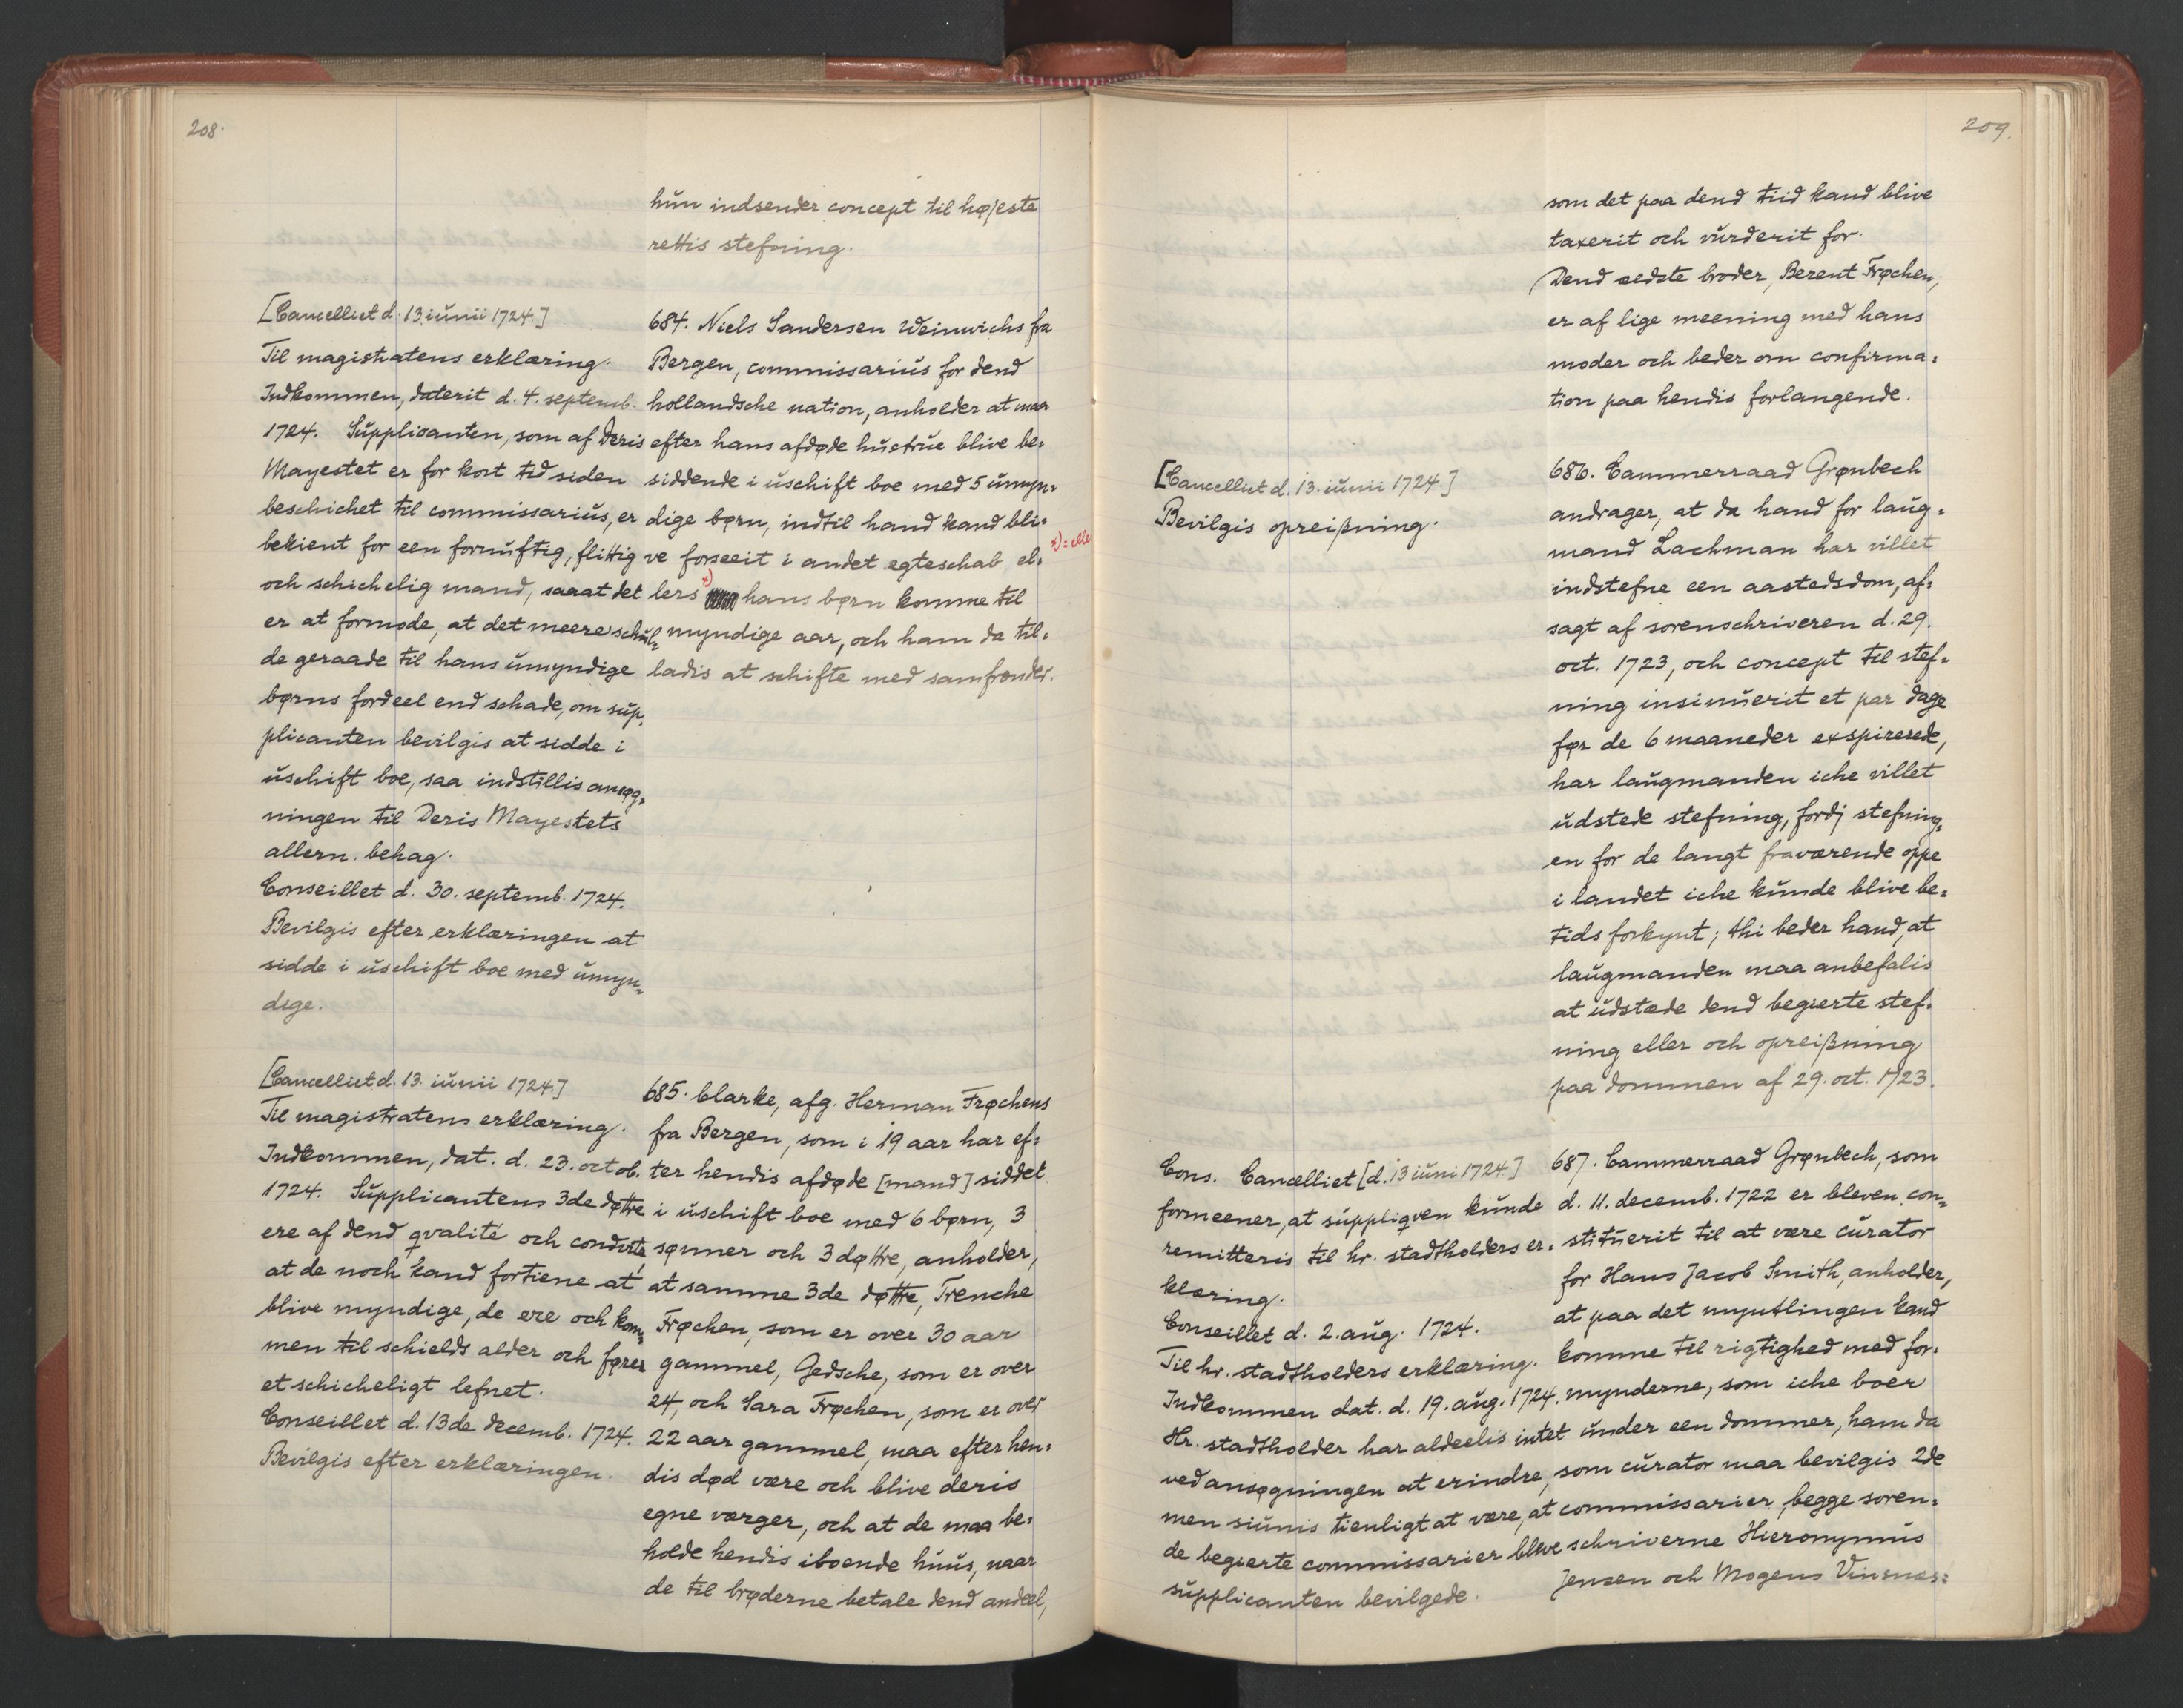 208.
hun indsender concept til højeste
rettis stefning.
[Cancelliet d. 13 iunii 1724.]
Til magistratens erklæring.
Indkommen, daterit d. 4. septemb.
1724. Supplicanten, som af Deris
Mayestet er for kort tid siden
beschichet til commissarius, er
bekient for een fornuftig, flittig
och schichelig mand, saaat det
er at formode, at det meere schul-
de geraade til hans umyndige
børns fordeel end schade, om sup-
plicanten bevilgis at sidde i
uschift boe, saa indstillis ansøg-
ningen til Deris Mayestets
allern. behag.
Conseillet d. 30. septemb. 1724.
Bevilgis efter erklæringen at
sidde i uschift boe med umyn-
dige.
684. Niels Sandersen Weinwichs fra
Bergen, commissarius for dend
hollandsche nation, anholder at maa
efter hans afdøde hustrue blive be-
siddende i uschift boe med 5 umyn-
dige børn, indtil hand kand bli-
ve forseeit i andet egteschab el-
x) = eller
lers x) hans børn komme til
myndige aar, och ham da til-
ladis at schifte med samfrender.
[Cancelliet d. 13. iunii 1724.]
Til magistratens erklæring.
Indkommen, dat. d. 23. octob.
1724. Supplicantens 3de døttre
ere af dend qvalité och conduite,
at de noch kand fortiene at
blive myndige, de ere och kom-
men til schields alder och fører
et schicheligt lefnet.
Conseillet d. 13de decemb. 1724.
Bevilgis efter erklæringen.
685. Clarke, afg. Herman Frøchens
fra Bergen, som i 19 aar har ef-
ter hendis afdøde [mand] siddet
i uschift boe med 6 børn, 3
sønner och 3 døttre, anholder,
at samme 3de døttre, Trenche
Frøchen, som er over 30 aar
gammel, Gedsche, som er over
24, och Sara Frøchen, som er over
22 aar gammel, maa efter hen-
dis død være och blive deris
egne værger, och at de maa be-
holde hendis iboende huus, naar
de til brøderne betale dend andeel,
209.
som det paa dend tiid kand blive
taxerit och vurderit for.
Dend ældste broder, Berent Frøchen,
er af lige meening med hans
moder och beder om confirma-
tion paa hendis forlangende.
[Cancelliet d. 13. iunii 1724.]
Bevilgis opreißning.
686. Cammerraad Grønbech
andrager, at da hand for laug-
mand Lachman har villet
indstefne een aastedsdom, af-
sagt af sorenschriveren d. 29.
oct. 1723, och concept til stef-
ning insinuerit et par dage
før de 6 maaneder exspirerede,
har laugmanden iche villet
udstede stefning, fordj stefning-
en for de langt fraværende oppe
i landet iche kunde blive be-
tids forkynt; thi beder hand, at
laugmanden maa anbefalis
at udstæde dend begierte stef-
ning eller och opreißning
paa dommen af 29. oct. 1723.
Cons. Cancelliet [d. 13 iuni 1724]
formeener, at suppliqven kunde
remitteris til hr. stadtholders er-
klæring.
Conseillet d. 2. aug. 1724.
Til hr. stadtholders erklæring.
Indkommen dat. d. 19. aug. 1724.
Hr. stadtholder har aldeelis intet
ved ansøgningen at erindre,
men siunis tienligt at være, at
de begierte commissarier blive
supplicanten bevilgede.
687. Cammerraad Grønbech, som
d. 11. decemb. 1722 er bleven con-
stituerit til at være curator
for Hans Jacob Smith, anholder,
at paa det myntlingen kand
komme til rigtighed med for-
mynderne, som iche boer
under een dommer, ham da
som curator maa bevilgis 2de
commissarier, begge soren-
schriverne Hieronymus
Jensen och Mogens Vinsnes-